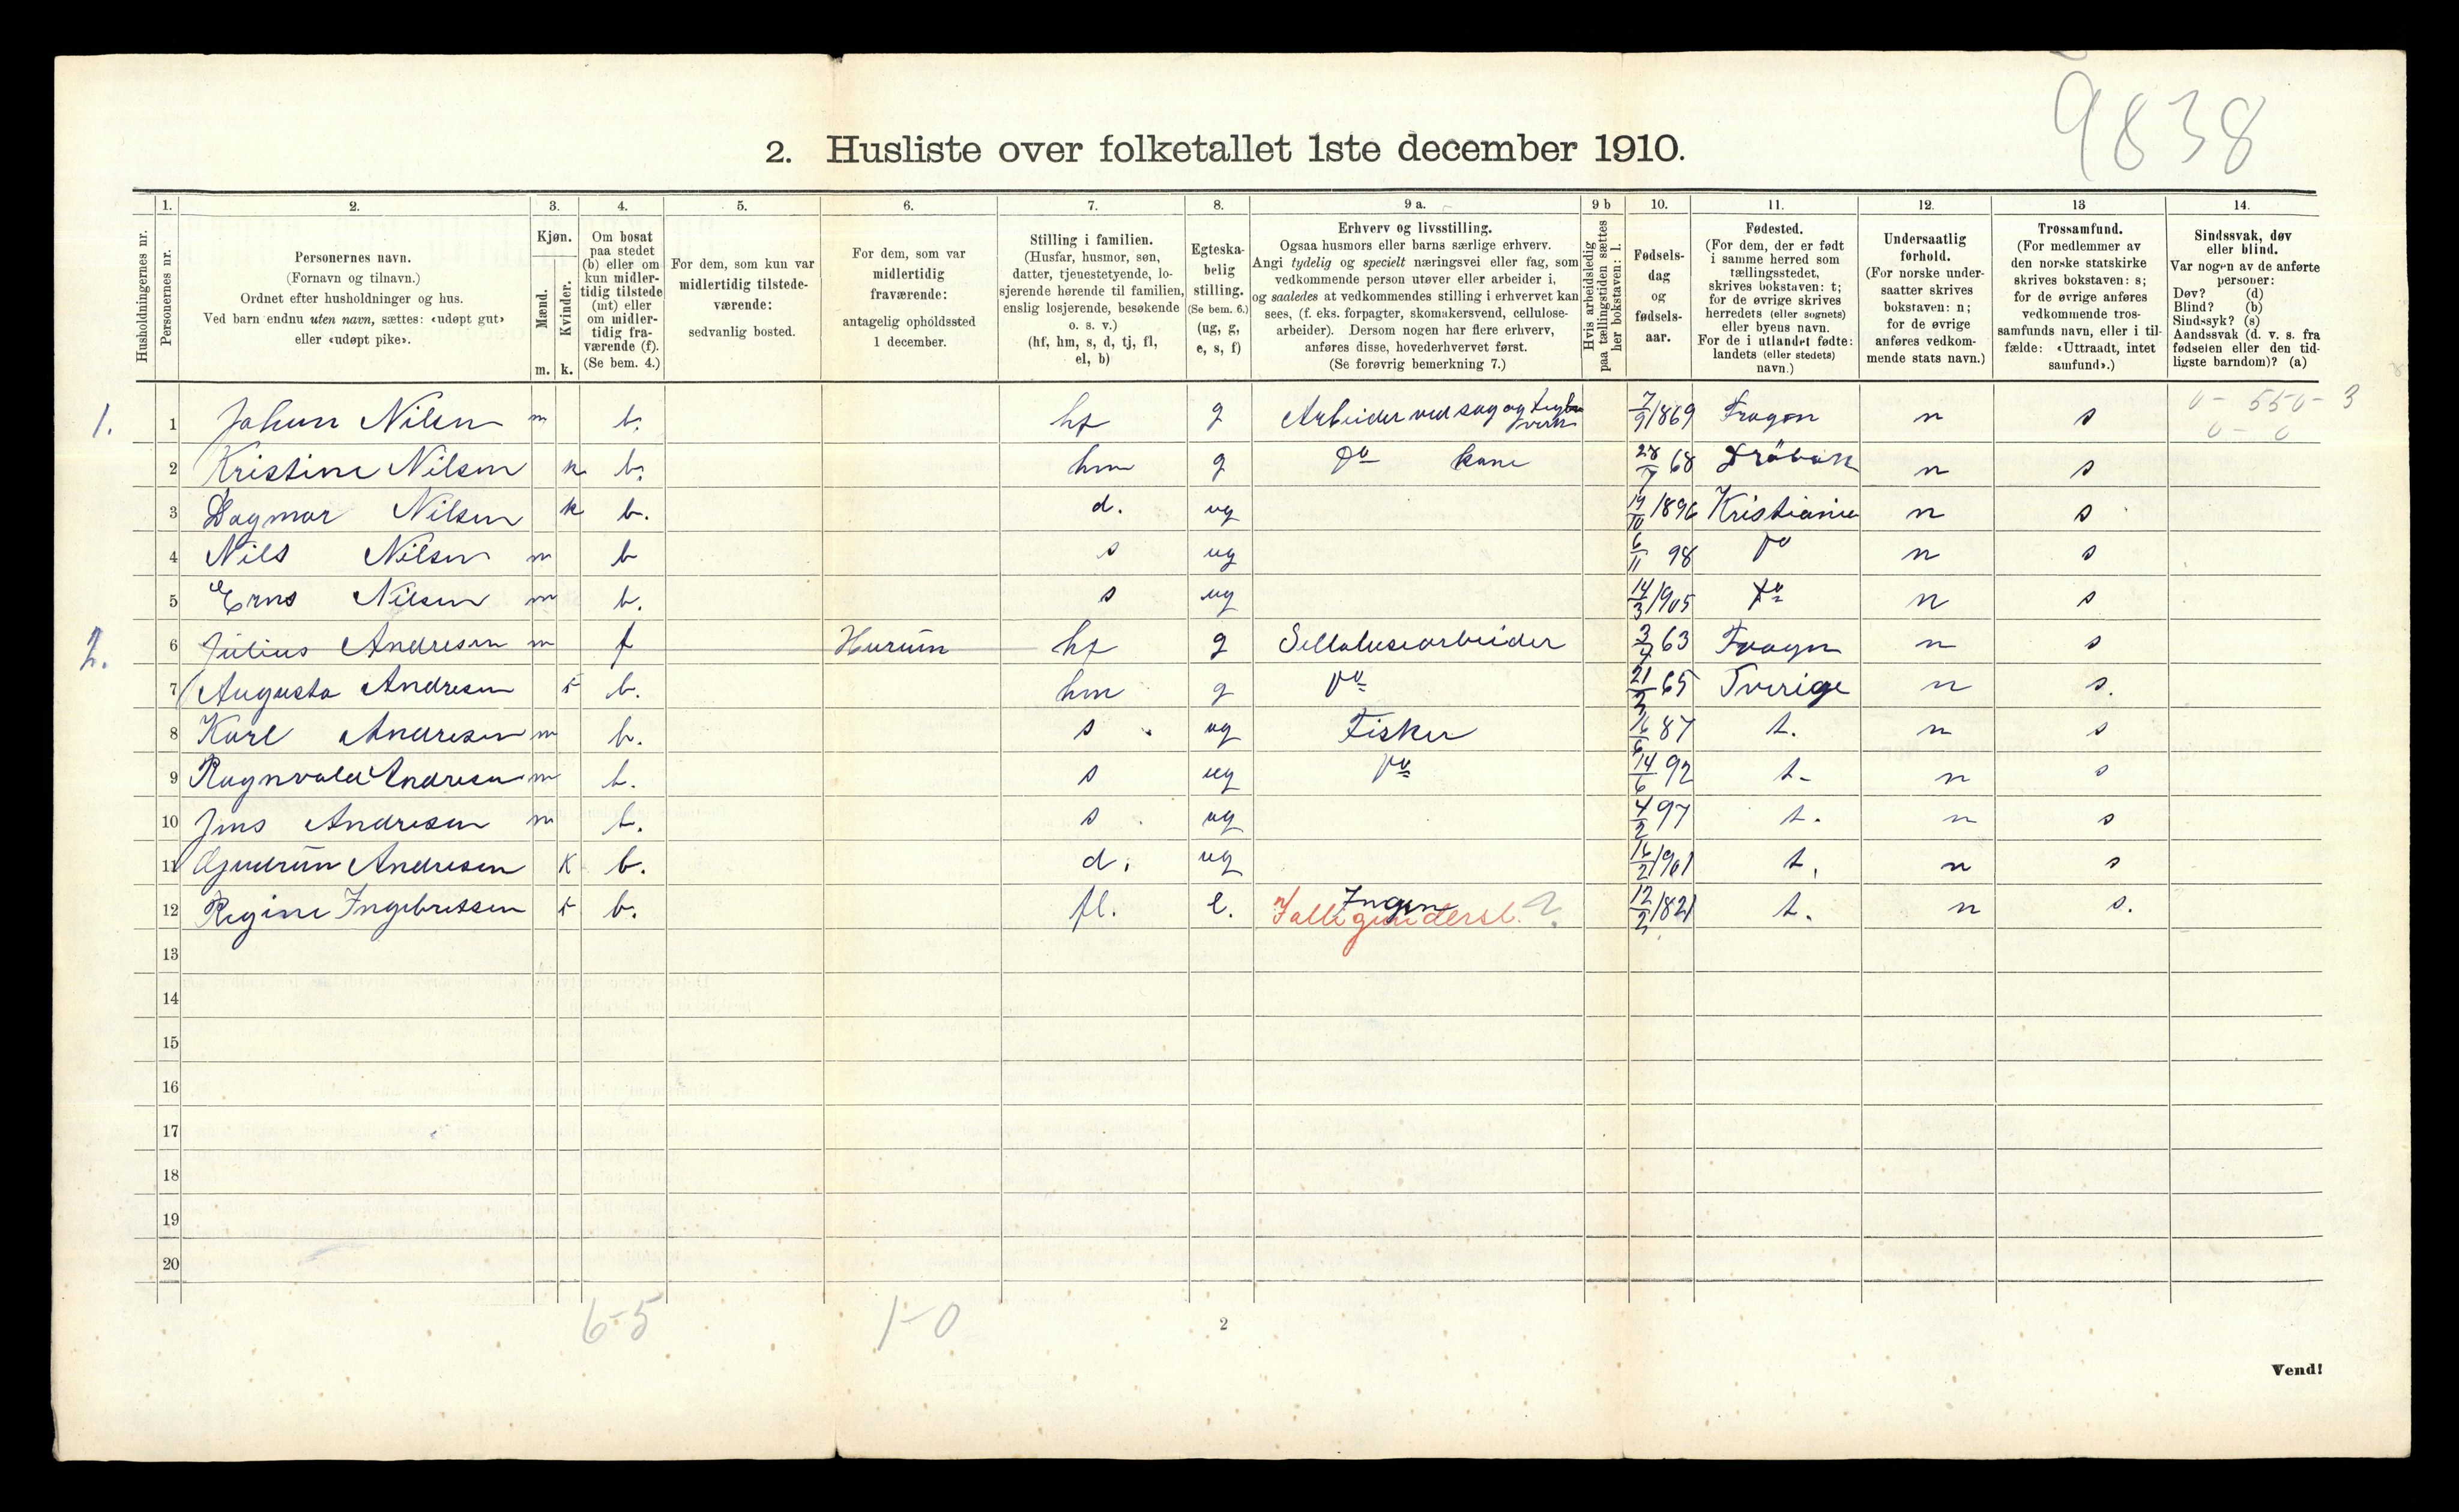 9838
2. Husliste over folketallet 1ste december 1910.
Husholdningernes nr.
1. Personernes nr.
2. Personernes navn.
(Fornavn og tilnavn.)
Ordnet efter husholdninger og hus.
Ved barn endnu uten navn, sættes: «udøpt gut»
eller «udøpt pike».
3. Kjøn.
Mænd. m.
Kvinder. k.
4. Om bosat
paa stedet
(b) eller om
kun midler-
tidig tilstede
(mt) eller
om midler-
tidig fra-
værende (f).
(Se bem. 4.)
5. For dem, som kun var
midlertidig tilstede-
værende:
sedvanlig bosted.
6. For dem, som var
midlertidig
fraværende:
antagelig opholdssted
1 december.
7. Stilling i familien.
(Husfar, husmor, søn,
datter, tjenestetyende, lo-
sjerende hørende til familien,
enslig losjerende, besøkende
o. s. v.)
(hf, hm, s, d, tj, fl,
el, b)
8. Egteska-
belig
stilling.
(Se bem. 6.)
(ug, g,
e, s, f)
9 a. Erhverv og livsstilling.
Ogsaa husmors eller barns særlige erhverv.
Angi tydelig og specielt næringsvei eller fag, som
vedkommende person utøver eller arbeider i,
og saaledes at vedkommendes stilling i erhvervet kan
sees, (f. eks. forpagter, skomakersvend, cellulose-
arbeider). Dersom nogen har flere erhverv,
anføres disse, hovederhvervet først.
(Se forøvrig bemerkning 7.)
9 b Hvis arbeidsledig
paa tællingstiden sættes
her bokstaven: l.
10. Fødsels-
dag
og
fødsels-
aar.
11. Fødested.
(For dem, der er født
i samme herred som
tællingsstedet,
skrives bokstaven: t;
for de øvrige skrives
herredets (eller sognets)
eller byens navn.
For de i utlandet fødte:
landets (eller stedets)
navn.)
12. Undersaatlig
forhold.
(For norske under-
saatter skrives
bokstaven: n;
for de øvrige
anføres vedkom-
mende stats navn.)
13 Trossamfund.
(For medlemmer av
den norske statskirke
skrives bokstaven: s;
for de øvrige anføres
vedkommende tros-
samfunds navn, eller i til-
fælde: «Uttraadt, intet
samfund».)
14. Sindssvak, døv
eller blind.
Var nogen av de anførte
personer:
Døv? (d)
Blind? (b)
Sindssyk? (s)
Aandssvak (d. v. s. fra
fødselen eller den tid-
ligste barndom)? (a)
1. 1 Johan Nilsen m b. hf g Arbeider ved sag og 7/9 1869 Frogn n s 0- 550- 3
0- 0
2 Kristine Nilsen k b. hm g Do kone 28/7 68 Drøbak n s
3 Dagmar Nilsen k b. d. ug 19/10 1896 Kristiania n s
4 Nils Nilsen m b s ug 6/11 98 Do n s
5 Erns Nilsen m b. s ug 14/3 1905 Do n s
2. 6 Julius Andresen m f Hurum hf g Sellulusearbeider 3/7 63 Frogn n s
7 Augusta Andresen k b. hm g Do 21/3 65 Sverige n s.
8 Karl Andresen m b. s ug Fisker 16/6 87 t. n s
9 Ragnvald Andresen m b. s ug Do 14/6 92 t. n s
10 Jens Andresen m b. s ug 4/2 97 t. n s
11 Gjudrun Andresen K b. d. ug 16/2 1901 t. n s
12 Regine Ingebretsen k b. fl. e. Ingen 12/2 1821 t. n s.
13
14
15
16
17
18
19
20
6-5 1-0
2
Vend!